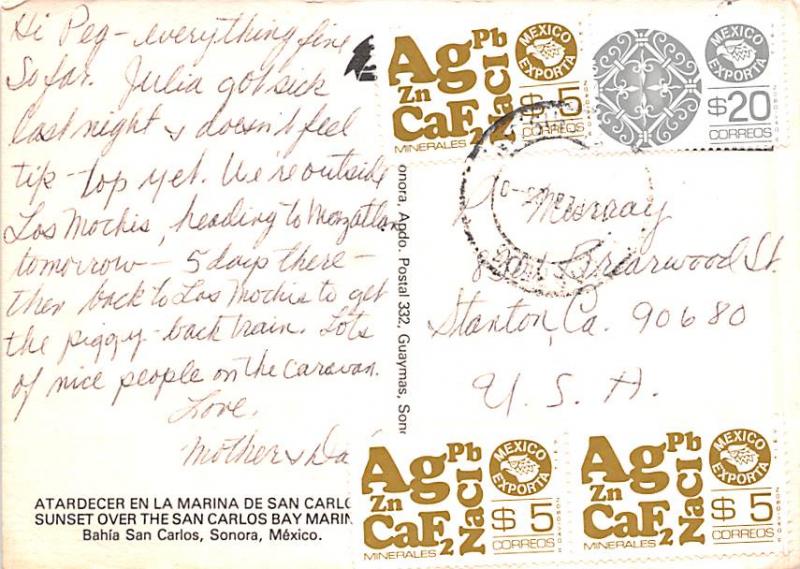 Hi Peg - everything fine
So far. Julia got sick
last night & doesn't feel
tip-top yet. We're outside
Los Mochis, heading to Manzatlan
tomorrow - 5 days there -
then back to Los Mochis to get
the piggy-back train. Lots
of nice people on the caravan.
Love,
Mother & Da
ATARDECER EN LA MARINA DE SAN CARLO
SUNSET OVER THE SAN CARLOS BAY MARIN
Bahía San Carlos, Sonora, México.
onora, Apdo. Postal 332, Guaymas, Sono
Ag Pb
Zn NaCl
CaF2
MINERALES
MEXICO
EXPORTA
$5
CORREOS
MEXICO
EXPORTA
$20
CORREOS
Murray
Briarwood St.
Stanton, Ca. 90680
U. S. A.
Ag Pb
Zn NaCl
CaF2
MINERALES
MEXICO
EXPORTA
$5
CORREOS
Ag Pb
Zn NaCl
CaF2
MINERALES
MEXICO
EXPORTA
$5
CORREOS